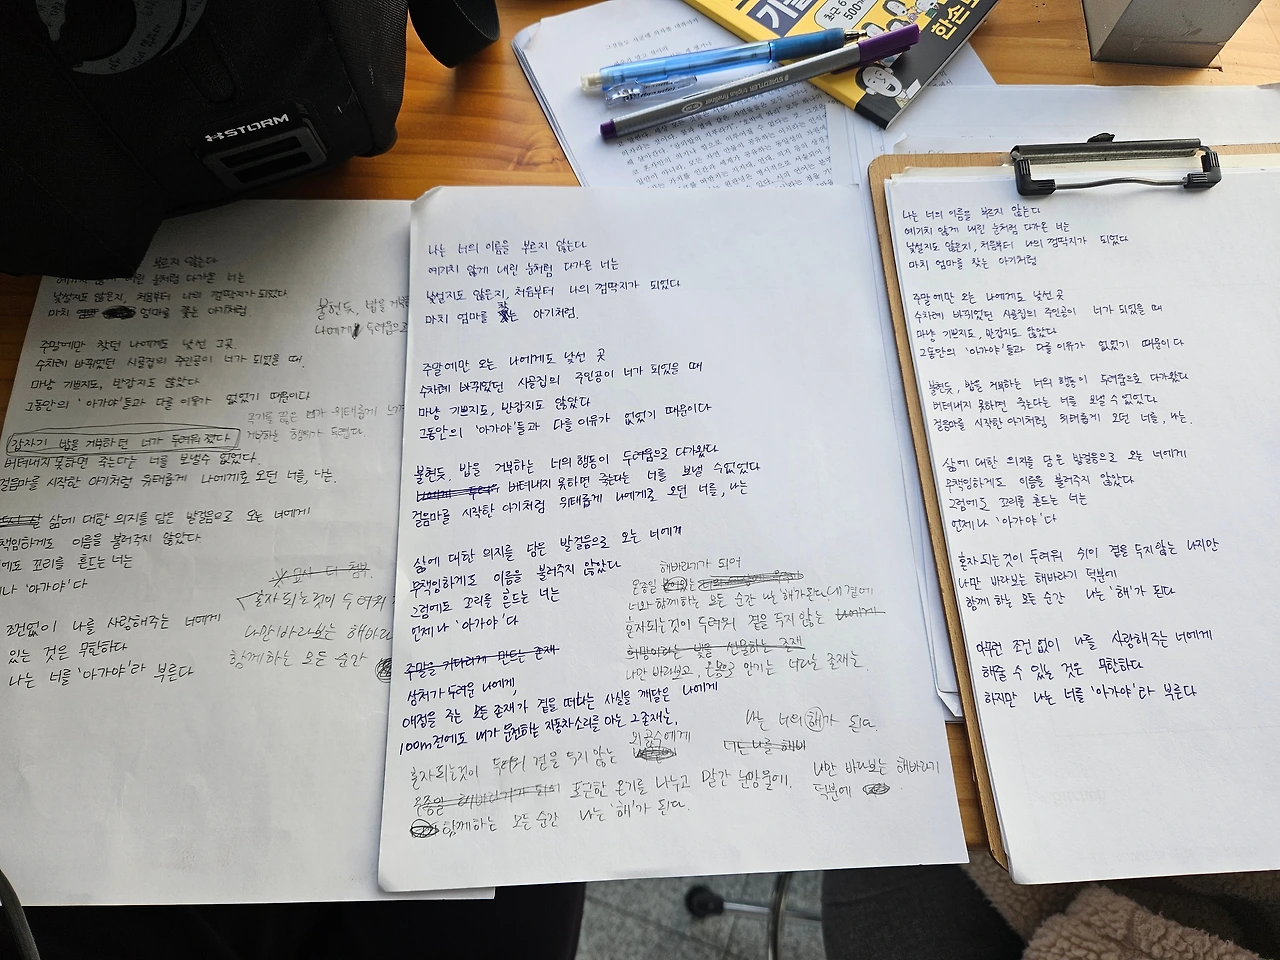 STORM
한손
나는 너의 이름을 부르지 않는다
예기치 않게 내린 눈처럼 다가온 너는
낯설지도 않은지, 처음부터 나의 껌딱지가 되었다
마치 엄마를 찾는 아기처럼
주말에만 오는 나에게도 낯선 곳
수차례 바뀌었던 시골집의 주인공이 너가 되었을 때
마냥 기쁘지도, 반갑지도 않았다
그동안의 '아가야'들과 다를 이유가 없었기 때문이다
불현듯, 밥을 거부하는 너의 행동이 두려움으로 다가왔다
버텨내지 못하면 죽는다는 너를 보낼 수 없었다
걸음마를 시작한 아기처럼 위태롭게 오던 너를, 나는
삶에 대한 의지를 담은 발걸음으로 오는 너에게
무책임하게도 이름을 불러주지 않았다
그럼에도 꼬리를 흔드는 너는
언제나 '아가야'다
혼자되는것이 두려워 쉬이 곁을 두지않는 나지만
나만 바라보는 해바라기 덕분에
함께 하는 모든 순간 나는 '해'가 된다
아무런 조건 없이 나를 사랑해주는 너에게
해줄 수 있는 것은 무한하다
하지만 나는 너를 '아가야'라 부른다
나는 너의 이름을 부르지 않는다
예기치 않게 내린 눈처럼 다가온 너는
낯설지도 않은지, 처음부터 나의 껌딱지가 되었다
마치 엄마를 찾는 아기처럼.
주말에만 오는 나에게도 낯선 곳
수차례 바뀌었던 시골집의 주인공이 너가 되었을 때
마냥 기쁘지도, 반갑지도 않았다
그동안의 '아가야'들과 다를 이유가 없었기 때문이다
불현듯, 밥을 거부하는 너의 행동이 두려움으로 다가왔다
버텨내지 못하면 죽는다는 너를 보낼 수없었다
걸음마를 시작한 아기처럼 위태롭게 나에게로 오던 너를, 나는
삶에 대한 의지를 담은 발걸음으로 오는 너에게
무책임하게도 이름을 불러주지 않았다
그럼에도 꼬리를 흔드는 너는
언제나 '아가야'다
주말을 기다리게 만드는 존재
상처가 두려운 나에게,
애정을 주는 모든 존재가 곁을 떠나는 사실을 깨달은 나에게
100m전에도 내가 운전하는 자동차소리를 아는 그존재는,
혼자되는것이 두려워 곁을 두지 않는
온종일 해바라기가 되어 포근한 온기를 나누고 말간 눈망울에.
함께하는 모든순간 나는 '해'가 된다.
해바라기가 되어
온종일
너와 함께하는 모든 순간 나는 '해'가된다
혼자되는것이 두려워 곁을 두지 않는
희망이라는 빛을 선물하는 존재
나만 바라보고, 온몸으로 안기는 너라는 존재는
나는 너의 해가 된다.
나만 바라보는 해바라기
덕분에
부르지 않는다
내린 눈처럼 다가온 너는
낯설지도 않은지, 처음부터 나의 껌딱지가 되었다
마치 엄마를 찾는 아기처럼
불현듯, 밥을 거부
나에게 두려움으로
주말에만 찾던 나에게도 낯선 그곳
수차례 바뀌었던 시골집의 주인공이 너가 되었을 때.
마냥 기쁘지도, 반갑지도 않았다
그동안의 '아가야'들과 다를 이유가 없었기 때문이다
갑자기 밥을 거부하던 너가 두려워졌다
버텨내지못하면 죽는다는 너를 보낼수 없었다.
걸음마를 시작한 아기처럼 위태롭게 나에게로 오던 너를, 나는.
삶에 대한 의지를 담은 발걸음으로 오는 너에게
책임하게도 이름을 불러주지 않았다
에도 꼬리를 흔드는 너는
나 '아가야'다
묘사 더 첨부
혼자되는것이 두려워
나만바라보는 해바라
함께하는 모든 순간
조건없이 나를 사랑해주는 너에게
있는 것은 무한하다
나는 너를 '아가야'라 부른다